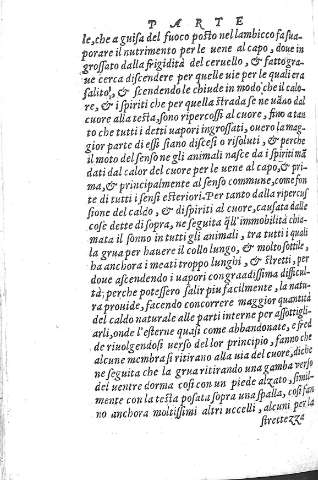 PARTE
le, che a guisa del fuoco posto nel lambicco fa sua-
porare il nutrimento per le uene al capo, doue in
grossato dalla frigidità del ceruello, & fatto gra-
ue cerca discendere per quelle uie per le quali era
salito, & scendendo le chiude in modo che il calo-
re, & i spiriti che per quella strada se ne uano dal
cuore alla testa, sono ripercossi al cuore, fino a tan
to che tutti i detti uapori ingrossati, ouero la mag-
gior parte di essi siano discesi o risoluti, & perche
il moto del senso ne gli animali nasce da i spiriti mā
dati dal calor del cuore per le uene al capo, & pri-
ma, & principalmente al senso commune, come fon
te di tutti i sensi esteriori. Per tanto dalla ripercus
sione del caldo, & di spiriti al cuore, causata dalle
cose dette di sopra, ne seguita q̃ll'immobilità chia-
mata il sonno in tutti gli animali, tra tutti i quali
la grua per hauere il collo lungo, & molto sottile,
ha anchora i meati troppo lunghi, & stretti, per
doue ascendendo i uapori con graadissima difficul-
tà; perche potessero salir piu facilmente, la natu-
ra prouide, facendo concorrere maggior quantità
del caldo naturale alle parti interne per assottigli-
arli, onde l'esterne quasi come abbandonate, e fred
de riuolgendosi uerso del lor principio, fanno che
alcune membra si ritirano alla uia del cuore, di che
ne seguita che la grua ritirando una gamba uerso
del uentre dorma cosi con un piede alzato, simil-
mente con la testa posata sopra una spalla, cosi fan
no anchora moltissimi altri uccelli, alcuni per la
strettezza